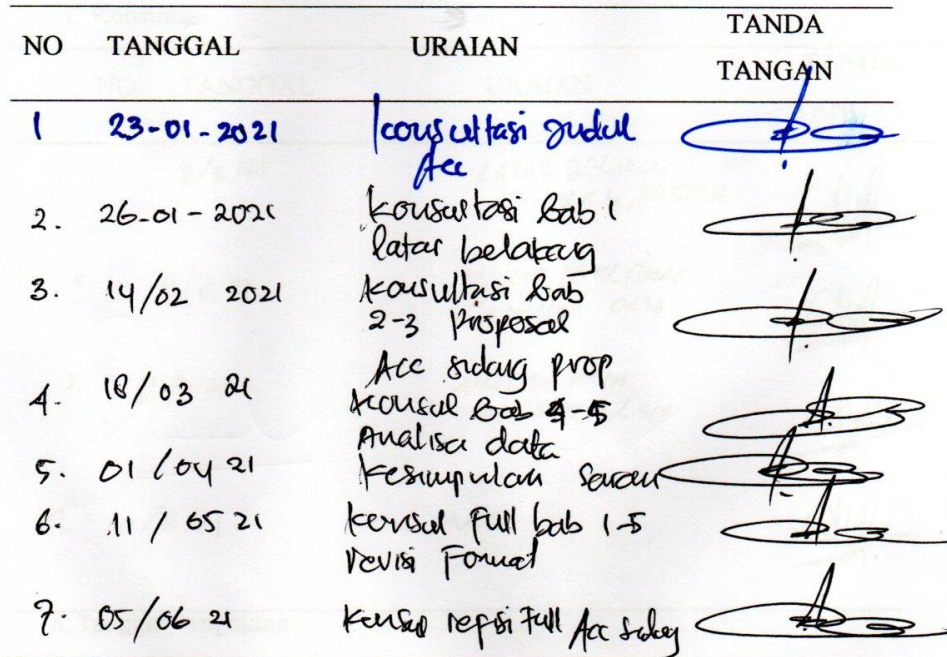 NO TANGGAL URAIAN TANDA TANGAN
1 23-01-2021 konsultasi Judul
Acc
2. 26-01-2021 konsultasi Bab 1
latar belakang
3. 14/02 2021 konsultasi Bab
2-3 Proposal
Acc sidang prop
4. 18/03 21 konsul Bab 4-5
Analisa data
5. 01/04 21 kesimpulan saran
6. 11/05 21 konsul Full bab 1-5
revisi Format
7. 05/06 21 konsul Full Acc sidang